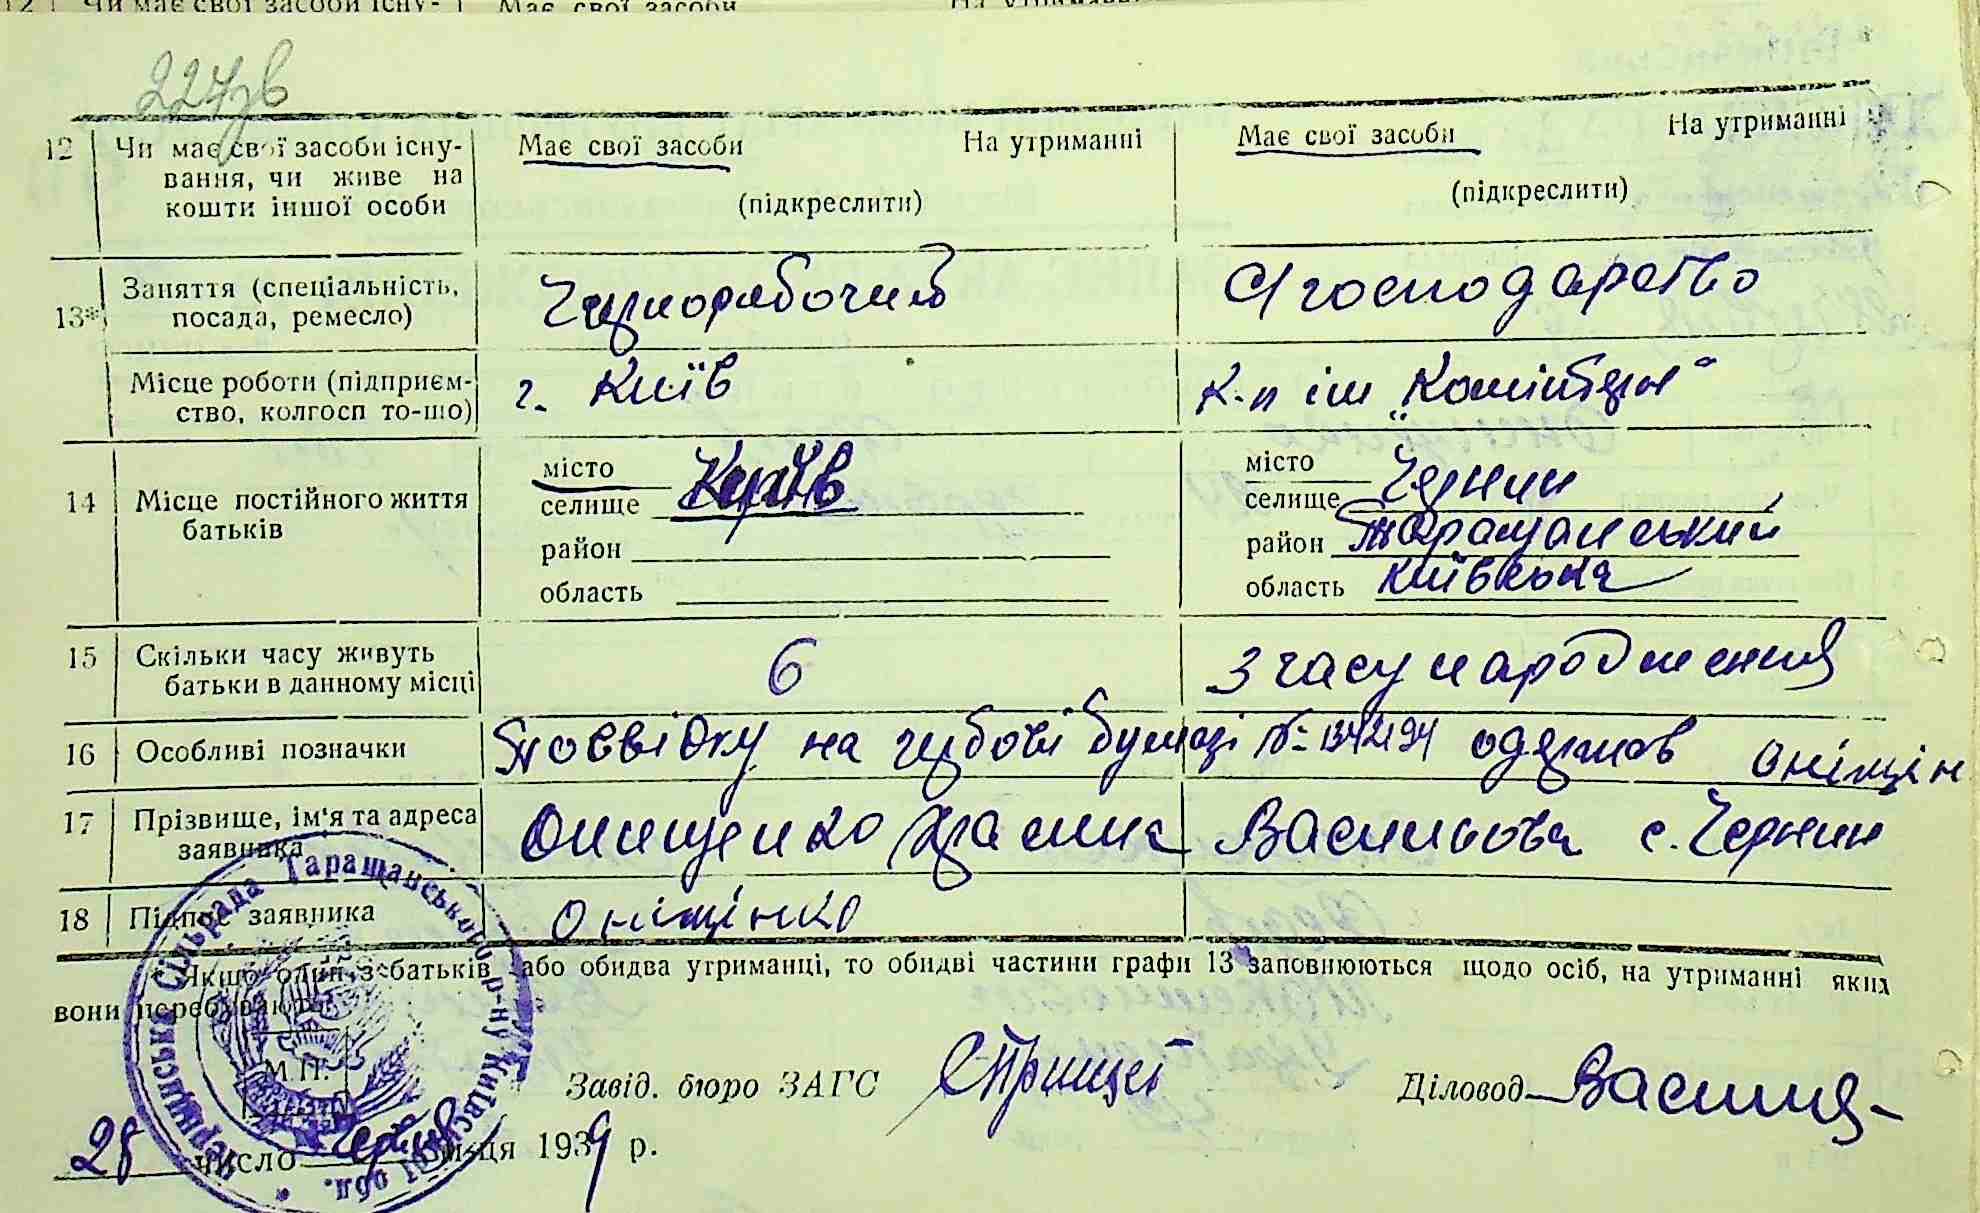 227зв
12 Чи має свої засоби існу- Має свої засоби На утриманні Має свої засоби На утриманні
вання, чи живе на
кошти іншої особи (підкреслити) (підкреслити)
13* Заняття (спеціальність, Чорнорабочий С/господарство
посада, ремесло)
Місце роботи (підприєм- г. Київ к-п ім "Комінтерн"
ство, колгосп то-що)
14 Місце постійного життя місто Київ місто
батьків селище селище Чернин
район район Таращанський
область область Київська
15 Скільки часу живуть 6 З часу народження
батьки в данному місці
16 Особливі позначки на гербові бумазі № 134294 одержав
17 Прізвище, ім'я та адреса Онищенко Василова с. Чернин
заявника
18 Підпис заявника оніщінко
* Якщо один з батьків або обидва утриманці, то обидві частини графи 13 заповнюються щодо осіб, на утриманні яких
вони перебувають.
М.П.
Завід. бюро ЗАГС Діловод
28 число червня м-ця 1939 р.
Чернинська Сільрада Таращанського р-ну Київської обл.